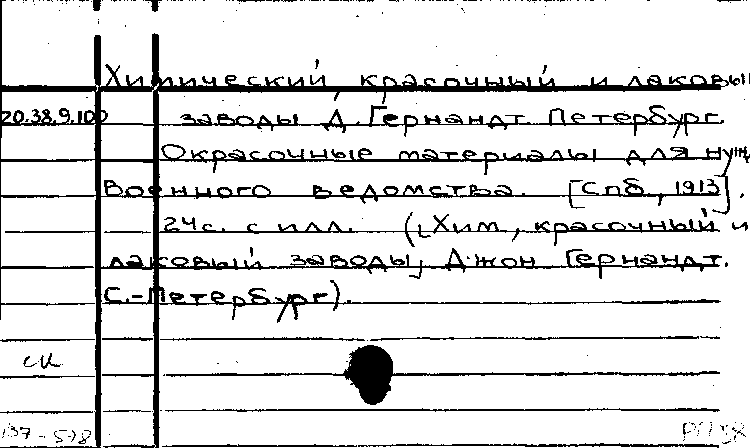 Химический, красочный и лаковый
20.38.9.100 заводы Д. Гернандт. Петербург.
Окрасочные материалы для нужд
Военного ведомства. [Спб., 1913],
24с. с илл. ([Хим., красочный и
лаковый заводы] Джон Гернандт.
С.-Петербург).
СК
137-578